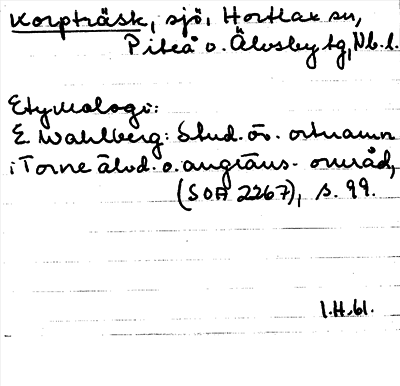 Korpträsk, sjö, Hortlax sn,
Piteå o. Älvsby tg, Nb. l.
Etymologi:
E. Wahlberg: Stud. öv. ortnamn
i Torne älvd. o. angräns. områd,
(SOA 2267), s. 99.
I.H. 61.